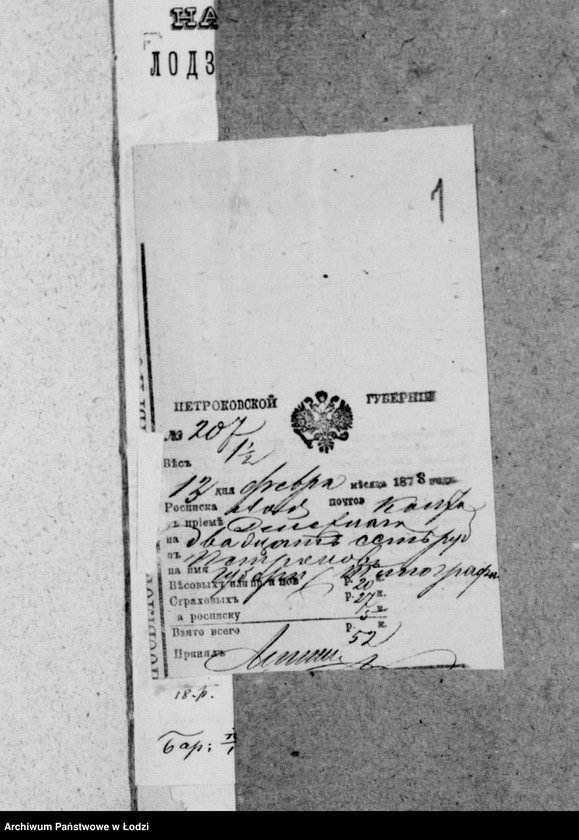 НА
ЛОДЗ
1
ПЕТРОКОВСКОЙ ГУБЕРНІИ
№ 207
Вѣсъ 1 1/2
12 дня февра мѣсяца 1878 года
Росписка почтов
въ пріемѣ
на двадцать семь руб
въ Петроковъ
на имя Губерн Типографи
Вѣсовыхъ р. 20 к.
Страховыхъ р. 27 к.
за росписку 5 к.
Взято всего р. 52 к.
Принялъ
18 р.
Бар:
Archiwum Państwowe w Łodzi